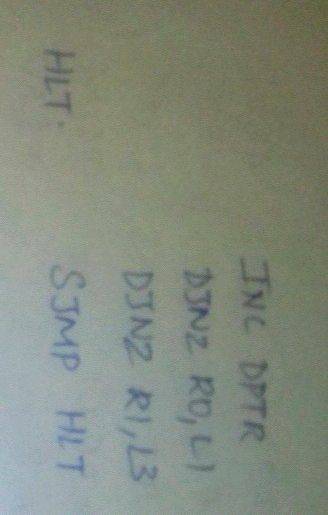 INC DPTR
DJNZ R0, L1
DJNZ R1, L3
HLT: SJMP HLT